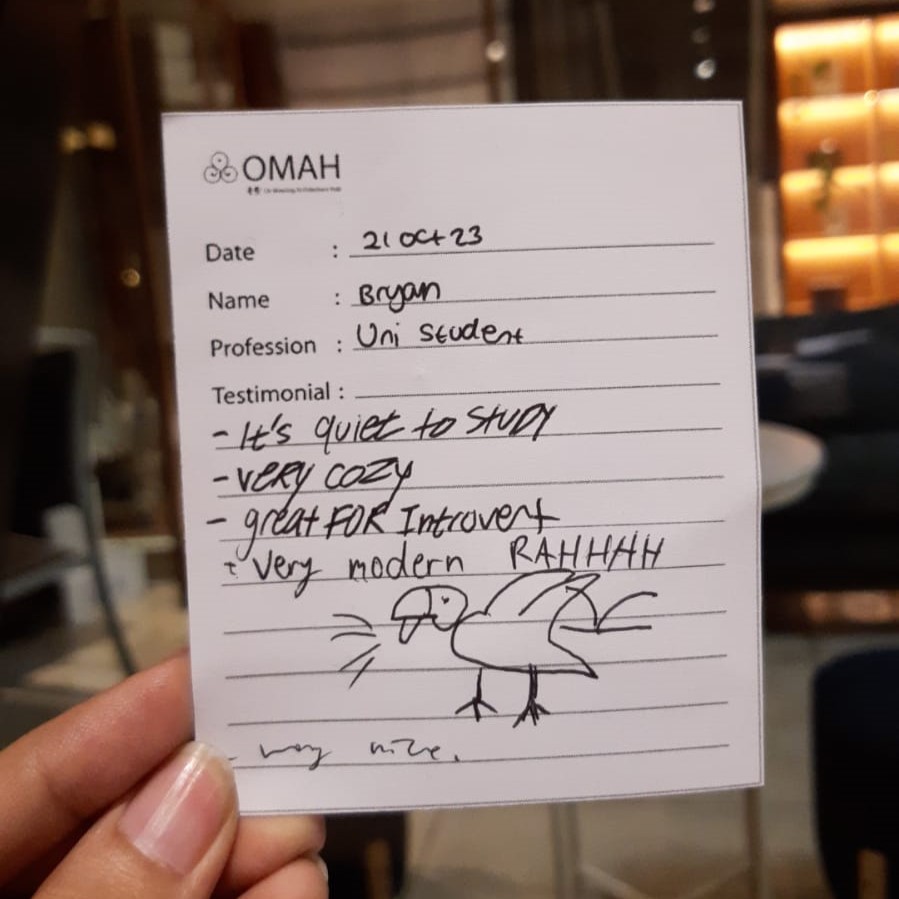 OMAH
Date : 21 Oct 23
Name : Bryan
Profession : Uni Student
Testimonial :
- It's quiet to STUDY
- VERY COZY
- great FOR Introvert
+ Very modern RAHHHH
- very nice.